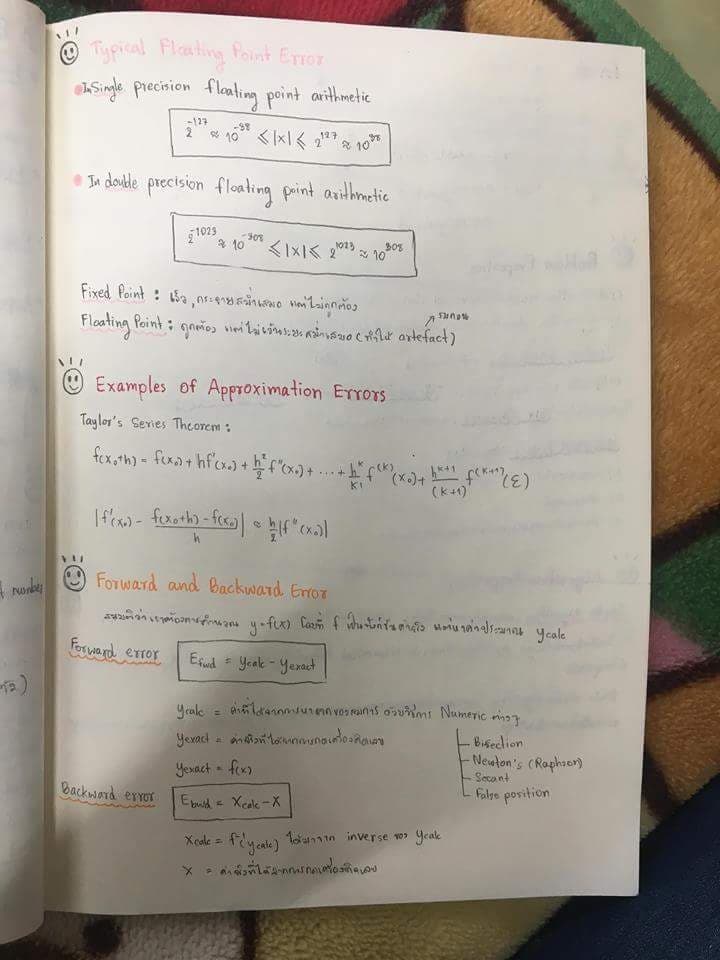 Typical Floating Point Error
In Single precision floating point arithmetic
2^-127 ≈ 10^-38 ≤ |x| ≤ 2^127 ≈ 10^38
In double precision floating point arithmetic
2^-1023 ≈ 10^-308 ≤ |x| ≤ 2^1023 ≈ 10^308
Fixed Point : เร็ว, กระจายสม่ำเสมอ แต่ไม่ถูกต้อง
รบกวน
Floating Point : ถูกต้อง แต่ไม่เว้นระยะสม่ำเสมอ (ทำให้ artefact)
Examples of Approximation Errors
Taylor's Series Theorem :
f(x₀+h) = f(x₀) + hf'(x₀) + h²/2 f''(x₀) + ... + h^k/k! f^(k)(x₀) + h^(k+1)/(k+1) f^(k+1)(ε)
|f'(x₀) - (f(x₀+h) - f(x₀))/h| ≈ h/2 |f''(x₀)|
Forward and Backward Error
สมมติว่าเราต้องการคำนวณ y=f(x) โดยที่ f เป็นฟังก์ชันค่าจริง แต่หาค่าประมาณ ycalc
Forward error
Efwd = ycalc - yexact
ycalc = ค่าที่ได้จากการหารากของสมการ ด้วยวิธีการ Numeric ต่างๆ
yexact = ค่าจริงที่ได้จากการกดเครื่องคิดเลข
Bisection
Newton's (Raphson)
Secant
False position
yexact = f(x)
Backward error
Ebwd = xcalc - x
xcalc = f⁻¹(ycalc) ได้มาจาก inverse ของ ycalc
x = ค่าจริงที่ได้จากการกดเครื่องคิดเลข